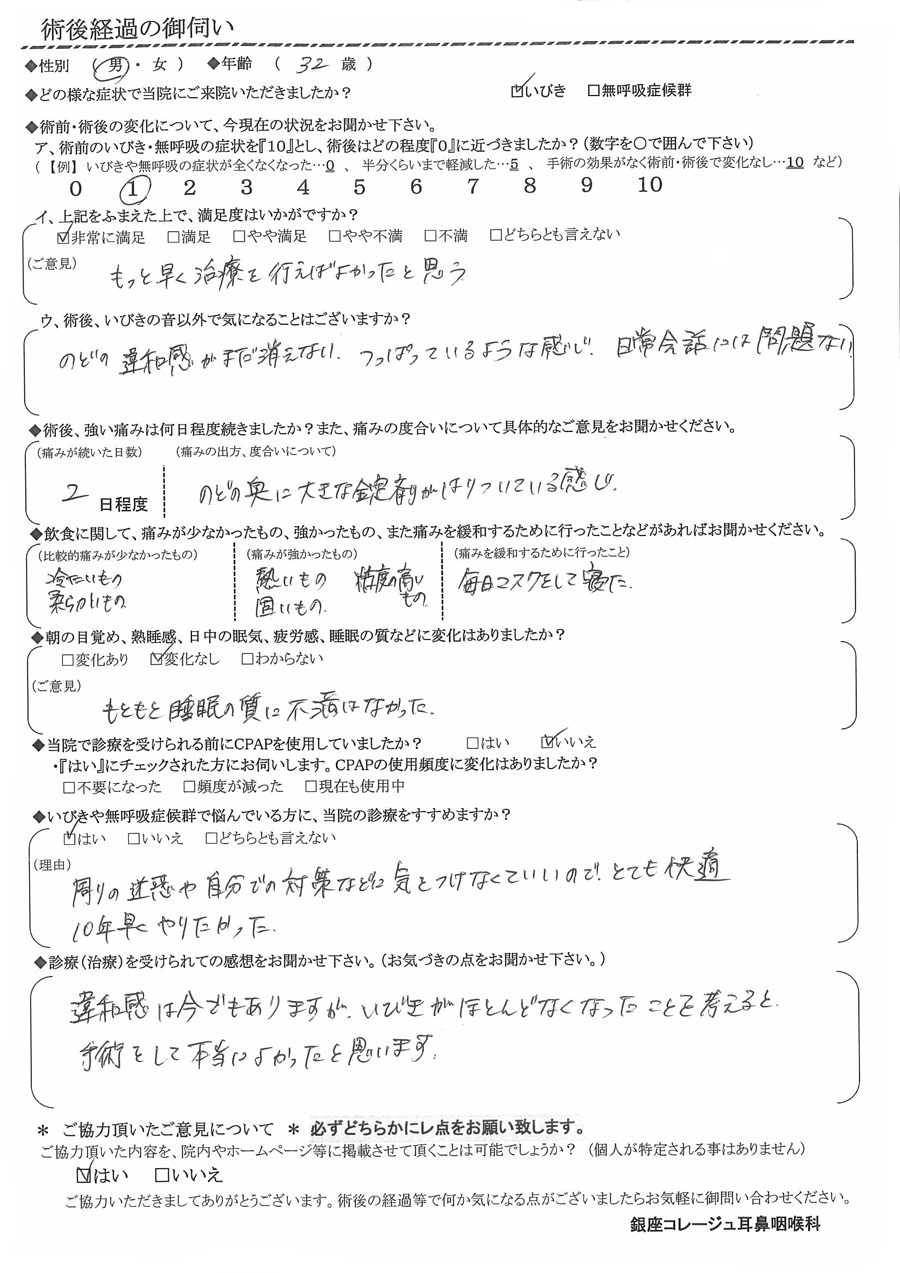 術後経過の御伺い
◆性別 ( 男 ・ 女 ) ◆年齢 ( 32 歳 )
◆どの様な症状で当院にご来院いただきましたか? ☑いびき □無呼吸症候群
◆術前・術後の変化について、今現在の状況をお聞かせ下さい。
ア、術前のいびき・無呼吸の症状を『10』とし、術後はどの程度『0』に近づきましたか?(数字を○で囲んで下さい)
(【例】いびきや無呼吸の症状が全くなくなった…0 、 半分くらいまで軽減した…5 、 手術の効果がなく術前・術後で変化なし…10 など)
0 1 2 3 4 5 6 7 8 9 10
イ、上記をふまえた上で、満足度はいかがですか?
☑非常に満足 □満足 □やや満足 □やや不満 □不満 □どちらとも言えない
(ご意見)
もっと早く治療を行えばよかったと思う
ウ、術後、いびきの音以外で気になることはございますか?
のどの違和感がまだ消えない. つっぱっているような感じ. 日常会話には問題ない
◆術後、強い痛みは何日程度続きましたか?また、痛みの度合いについて具体的なご意見をお聞かせください。
(痛みが続いた日数) (痛みの出方、度合いについて)
2 日程度 のどの奥に大きな錠剤がはりついている感じ.
◆飲食に関して、痛みが少なかったもの、強かったもの、また痛みを緩和するために行ったことなどがあればお聞かせください。
(比較的痛みが少なかったもの) (痛みが強かったもの) (痛みを緩和するために行ったこと)
冷たいもの 熱いもの 粘度の高いもの 毎日マスクをして寝た.
柔らかいもの 固いもの.
◆朝の目覚め、熟睡感、日中の眠気、疲労感、睡眠の質などに変化はありましたか?
□変化あり ☑変化なし □わからない
(ご意見)
もともと睡眠の質に不満はなかった.
◆当院で診療を受けられる前にCPAPを使用していましたか? □はい ☑いいえ
・『はい』にチェックされた方にお伺いします。CPAPの使用頻度に変化はありましたか?
□不要になった □頻度が減った □現在も使用中
◆いびきや無呼吸症候群で悩んでいる方に、当院の診療をすすめますか?
☑はい □いいえ □どちらとも言えない
(理由)
周りの迷惑や自分での対策などに気をつけなくていいので、とても快適
10年早くやりたかった.
◆診療(治療)を受けられての感想をお聞かせ下さい。(お気づきの点をお聞かせ下さい。)
違和感は今でもありますが、いびきがほとんどなくなったことを考えると、
手術をして本当によかったと思います.
* ご協力頂いたご意見について * 必ずどちらかにレ点をお願い致します。
ご協力頂いた内容を、院内やホームページ等に掲載させて頂くことは可能でしょうか? (個人が特定される事はありません)
☑はい □いいえ
ご協力いただきましてありがとうございます。術後の経過等で何か気になる点がございましたらお気軽に御問い合わせください。
銀座コレージュ耳鼻咽喉科